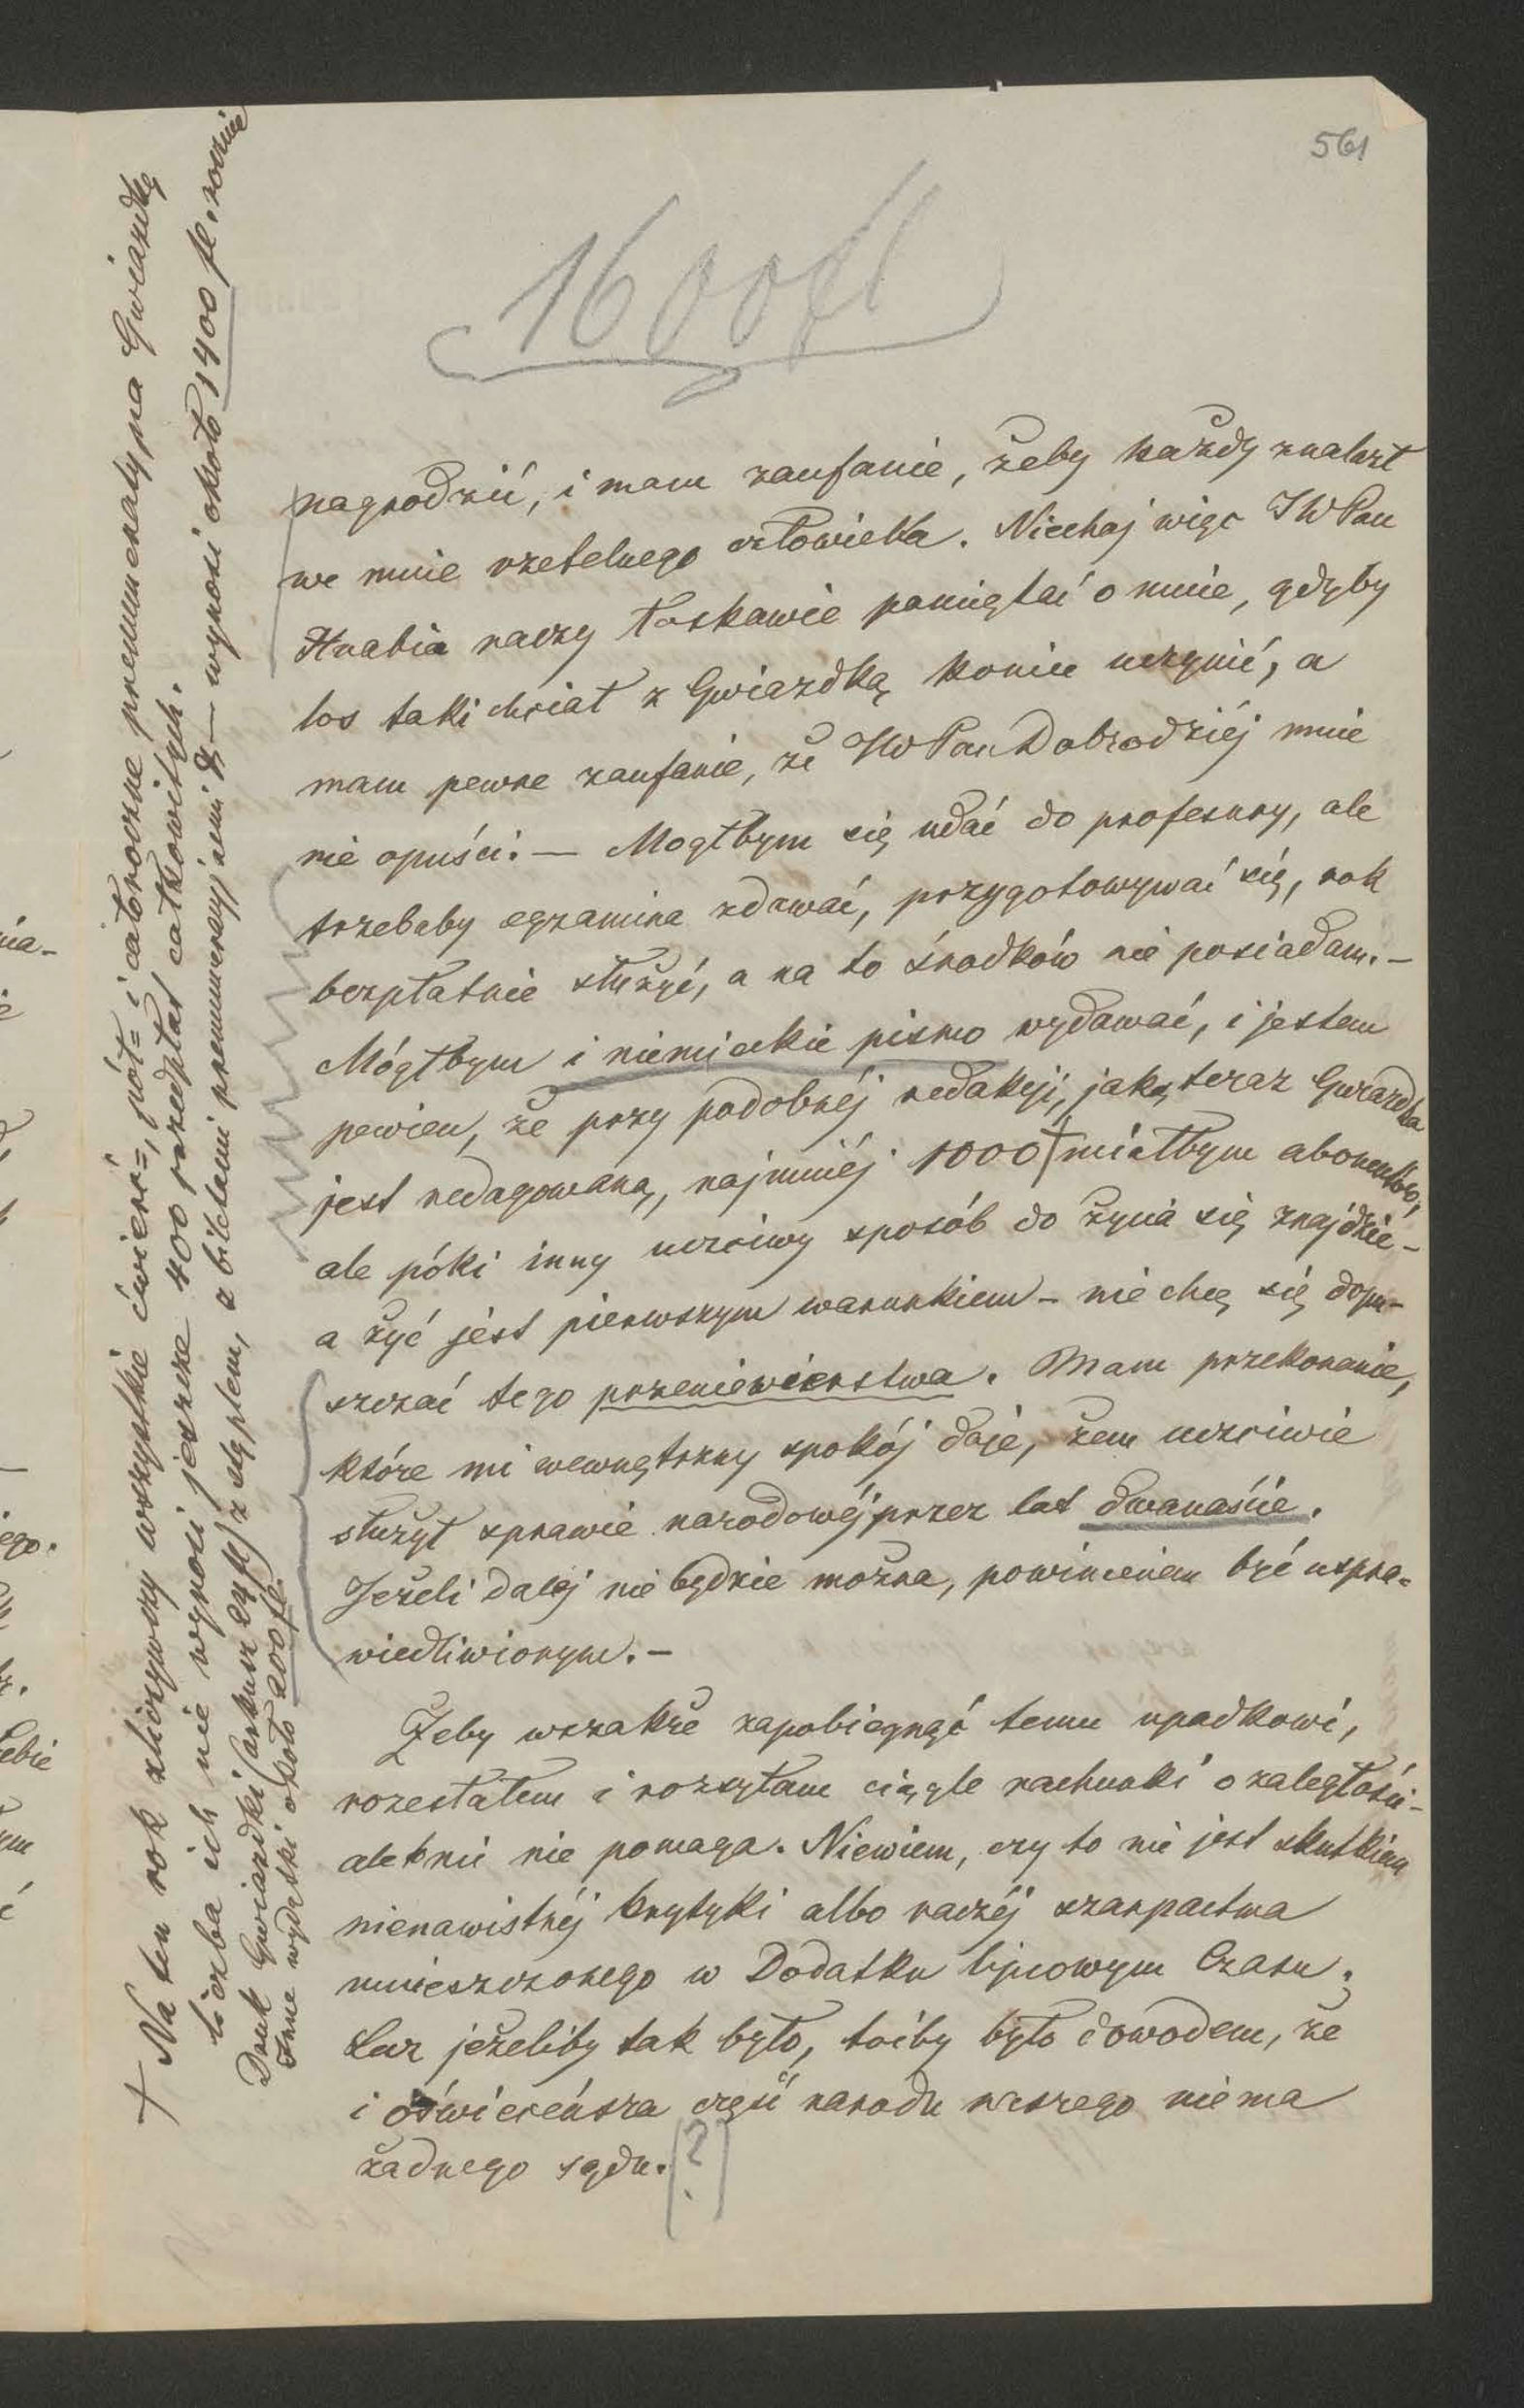 561
1600 fl
nagrodzić, i mam zaufanie, żeby każdy znalazł
we mnie rzetelnego człowieka. Niechaj więc JWPan
Hrabia raczy łaskawie pamiętać o mnie, gdyby
los taki chciał z Gwiazdką koniec uczynić, a
mam pewne zaufanie, że JWPan Dobrodziéj mnie
nie opuści. — Mogłbym się udać do profesury, ale
trzebaby egzamina zdawać, przygotowywać się, rok
bezpłatnie służyć, a na to środków nie posiadam. —
Mógłbym i niemieckie pismo wydawać, i jestem
pewien, że przy podobnéj redakcyi, jaką teraz Gwiazdka
jest redagowana, najmniéj 1000 + miałbym abonentów,
ale póki inny uczciwy sposób do życia się znajdzie –
a żyć jest pierwszym warunkiem – nie chcę się dopu-
szczać tego przeniewierstwa. Mam przekonanie,
które mi wewnętrzny spokój daje, żem uczciwie
służył sprawie narodowéj przez lat dwanaście.
Jeżeli daléj nie będzie można, powinienem być uspra-
wiedliwionym. –
Żeby wszakże zapobiegnąć temu upadkowi,
rozesłałem i rozsyłam ciągle rachunki o zaległość –
ale to nic nie pomaga. Niewiem, czy to nie jest skutkiem
nienawistnéj krytyki albo raczéj szarpactwa
umieszczonego w Dodatku lipcowym Czasu;
Lecz jeżeliby tak było, toćby było dowodem, że
i oświeceńsza część narodu naszego niema
żadnego sądu. (?)
+ Na ten rok zliczywszy wszystkie ćwierć=, pół= i całoroczne prenumeraty na Gwiazdkę
liczba ich nie wynosi jeszcze 400 przedpłat całkowitych.
Druk Gwiazdki (arkusz 24 fl) z stęplem, z biletami prenumeracyjnemi — wynosi około 1400 fl. rocznie
Inne wydatki około 200 fl.